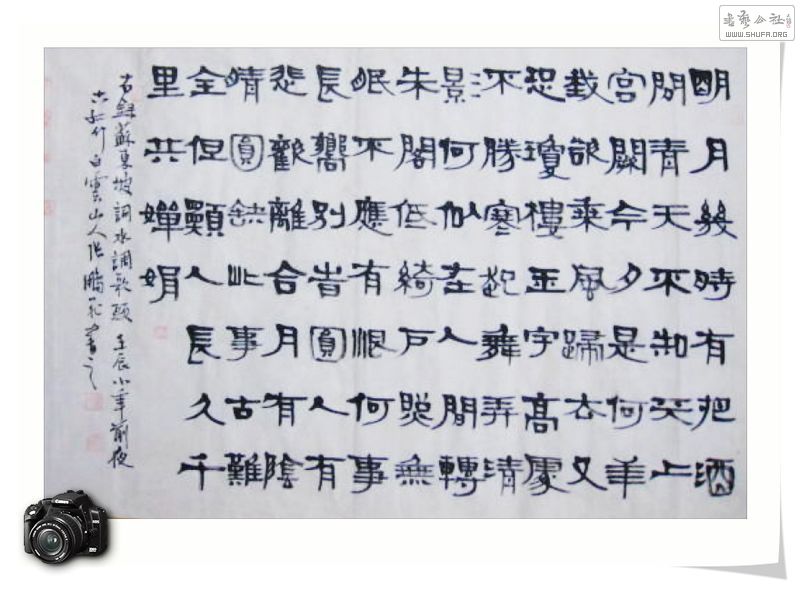 明月幾時有把酒
問青天不知天上
宮闕今夕是何年
我欲乘風歸去又
恐瓊樓玉宇高處
不勝寒起舞弄清
影何似在人間轉
朱閣低綺戶照無
眠不應有恨何事
長嚮別旹圓人有
悲歡離合月有陰
晴圓缺此事古難
全但願人長久千
里共嬋娟
右錄蘇東坡詞水調歌頭 壬辰小年前夜
白雲山人張鵬書之
書藝公社
WWW.SHUFA.ORG